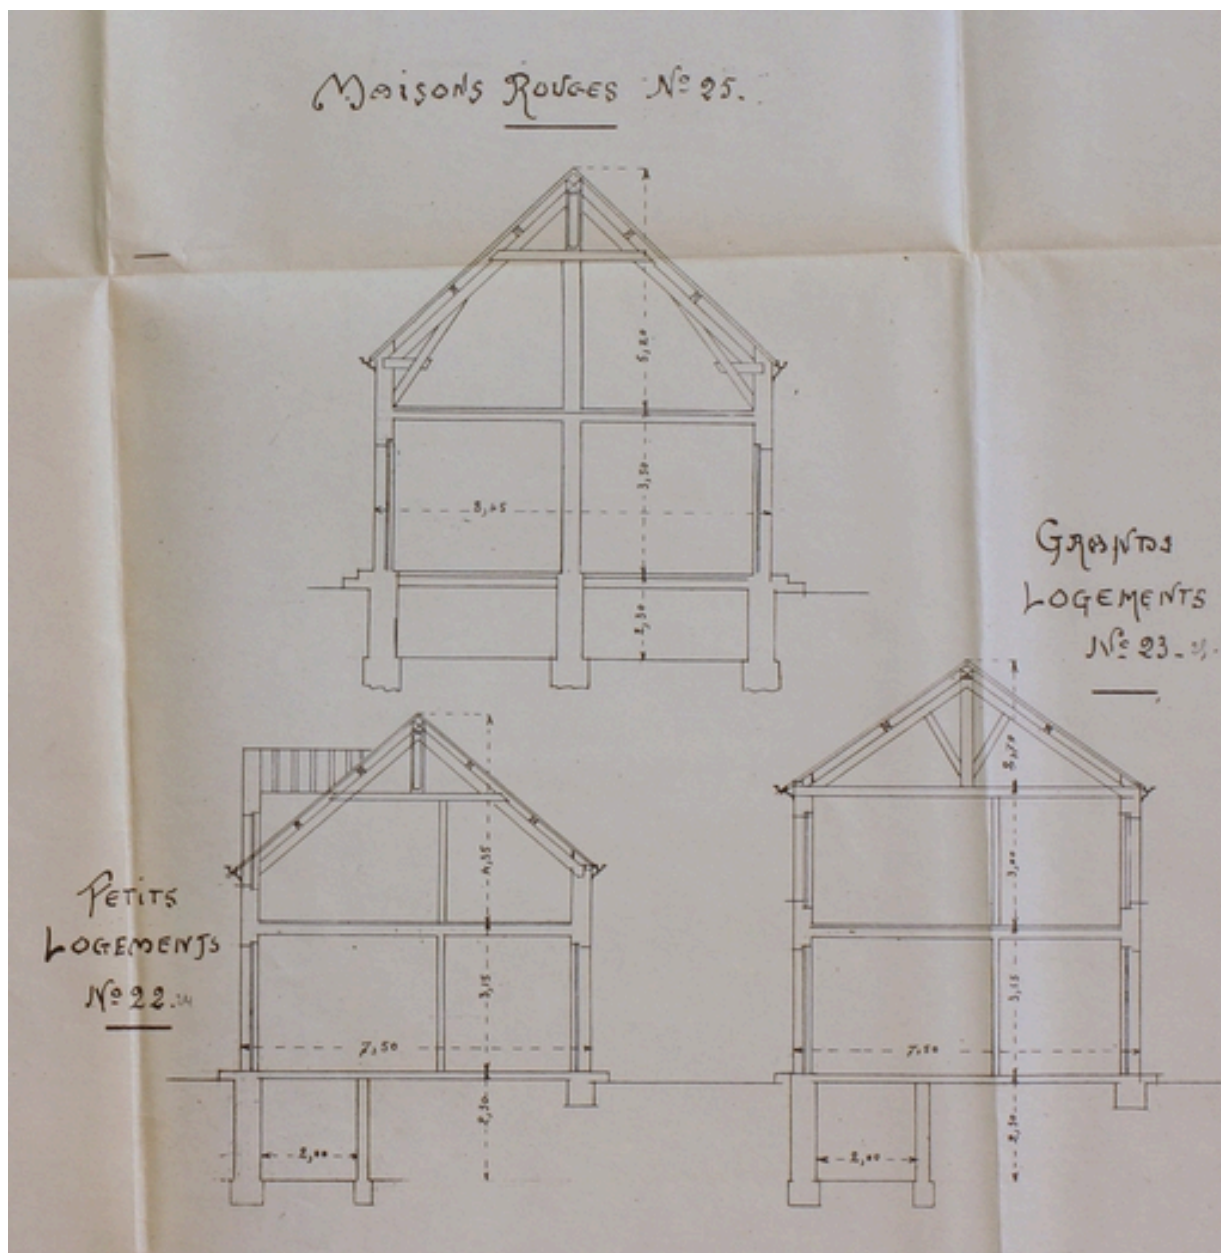 Maisons Rouges Nº 25.
5,20
3,50
8,45
2,50
Grands
Logements
Nº 23.
2,70
3,00
3,15
7,50
2,50
2,00
Petits
Logements
Nº 22.
4,35
3,15
7,50
2,50
2,00